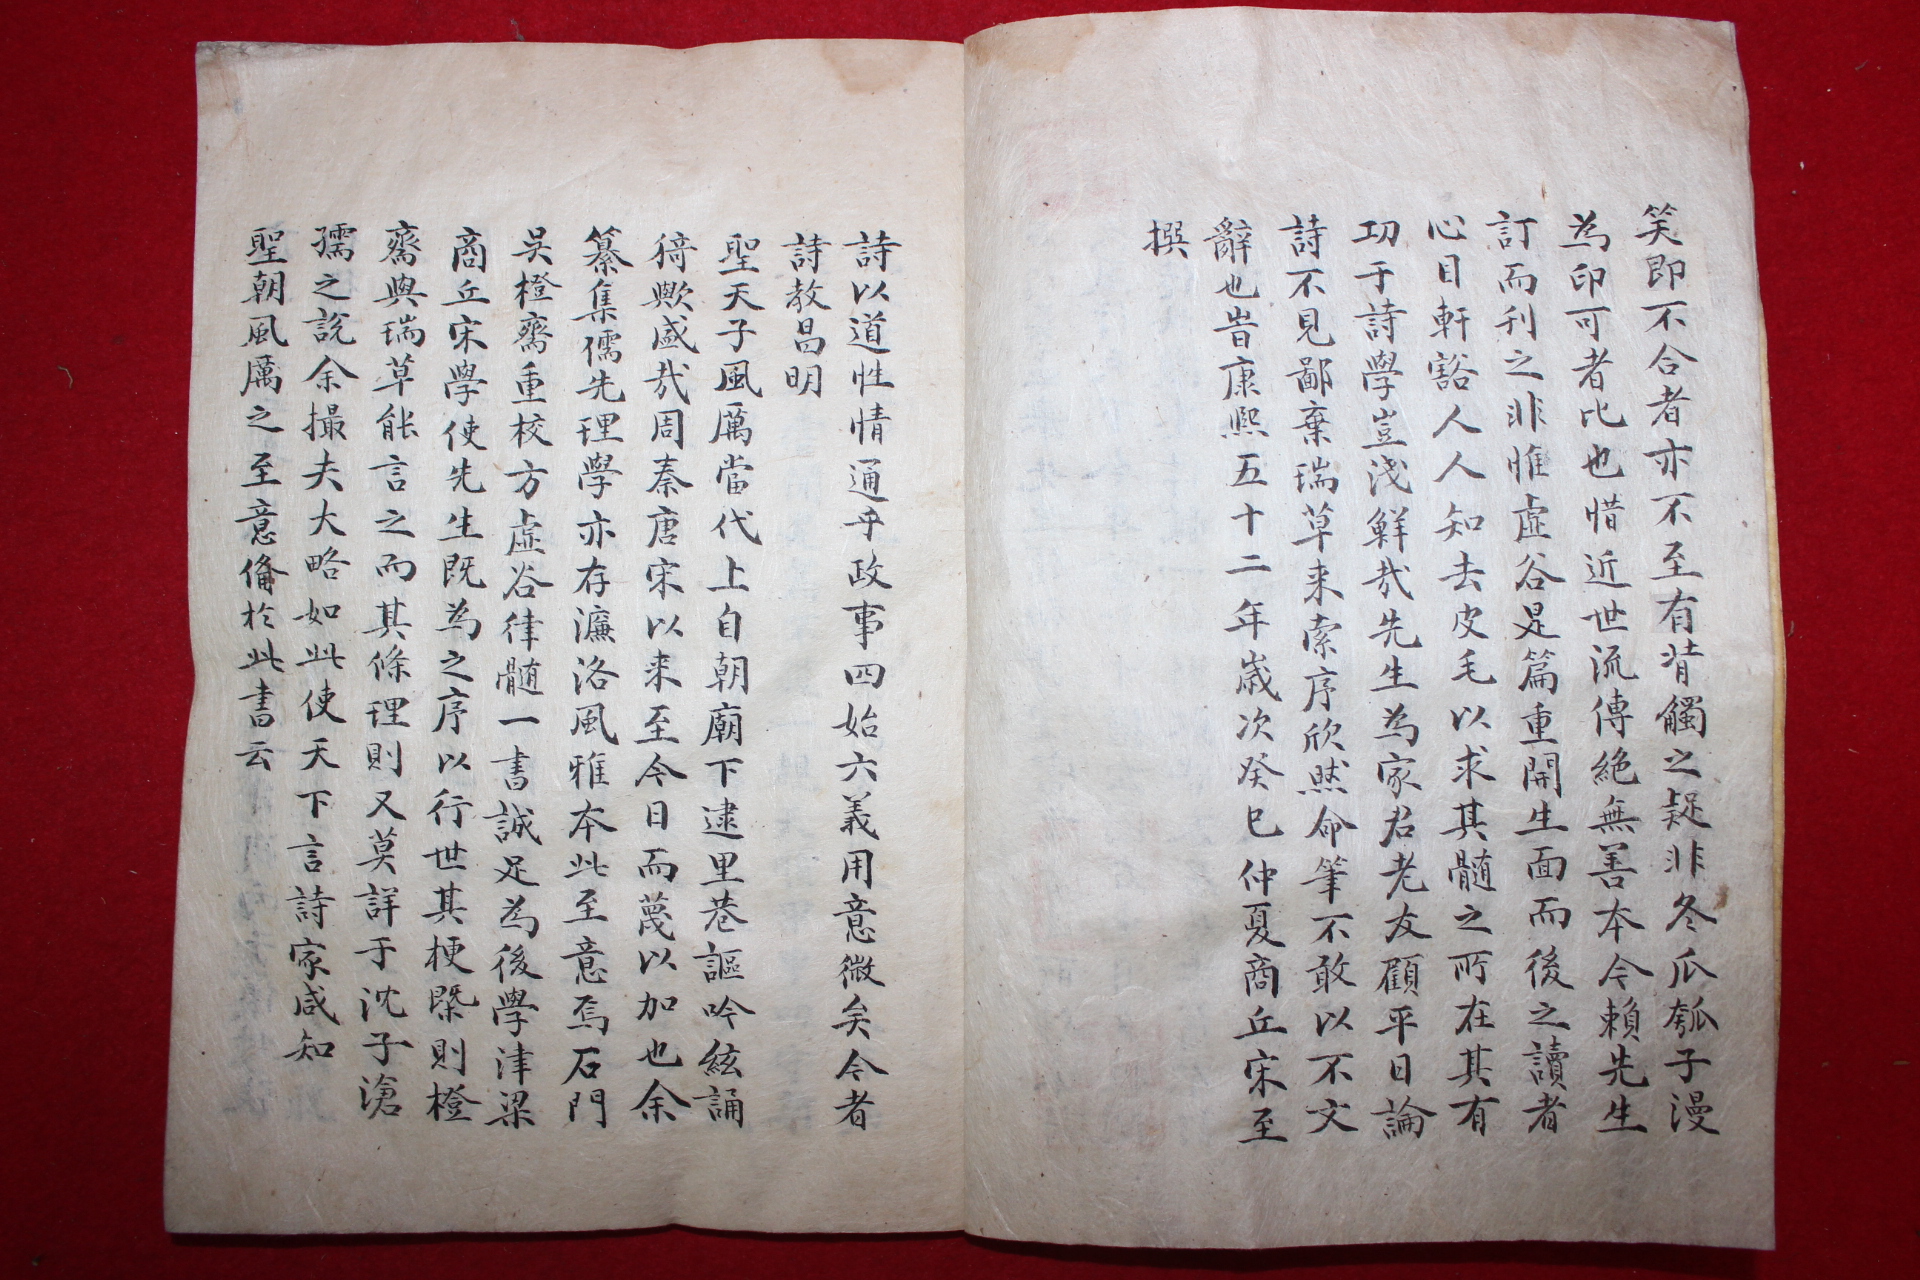 笑即不合者亦不至有背觸之疑非冬瓜瓠子漫
為印可者比也惜近世流傳絕無善本今賴先生
訂而刊之非惟虛谷是篇重開生面而後之讀者
心目軒豁人人知去皮毛以求其髓之所在其有
功于詩學豈淺鮮哉先生為家君老友顧平日論
詩不見鄙棄瑞草来索序欣然命筆不敢以不文
辭也旹康熙五十二年歲次癸巳仲夏商丘宋至
撰
詩以道性情通乎政事四始六義用意微矣今者
詩教昌明
聖天子風厲當代上自朝廟下逮里巷謳吟絃誦
猗歟盛哉周秦唐宋以来至今日而蔑以加也余
纂集儒先理學亦存濂洛風雅本此至意焉石門
吳橙齋重校方虛谷律髓一書誠足為後學津梁
商丘宋學使先生既為之序以行世其梗槩則橙
齋與瑞草能言之而其條理則又莫詳于沈子滄
孺之說余撮夫大略如此使天下言詩家咸知
聖朝風厲之至意俻於此書云